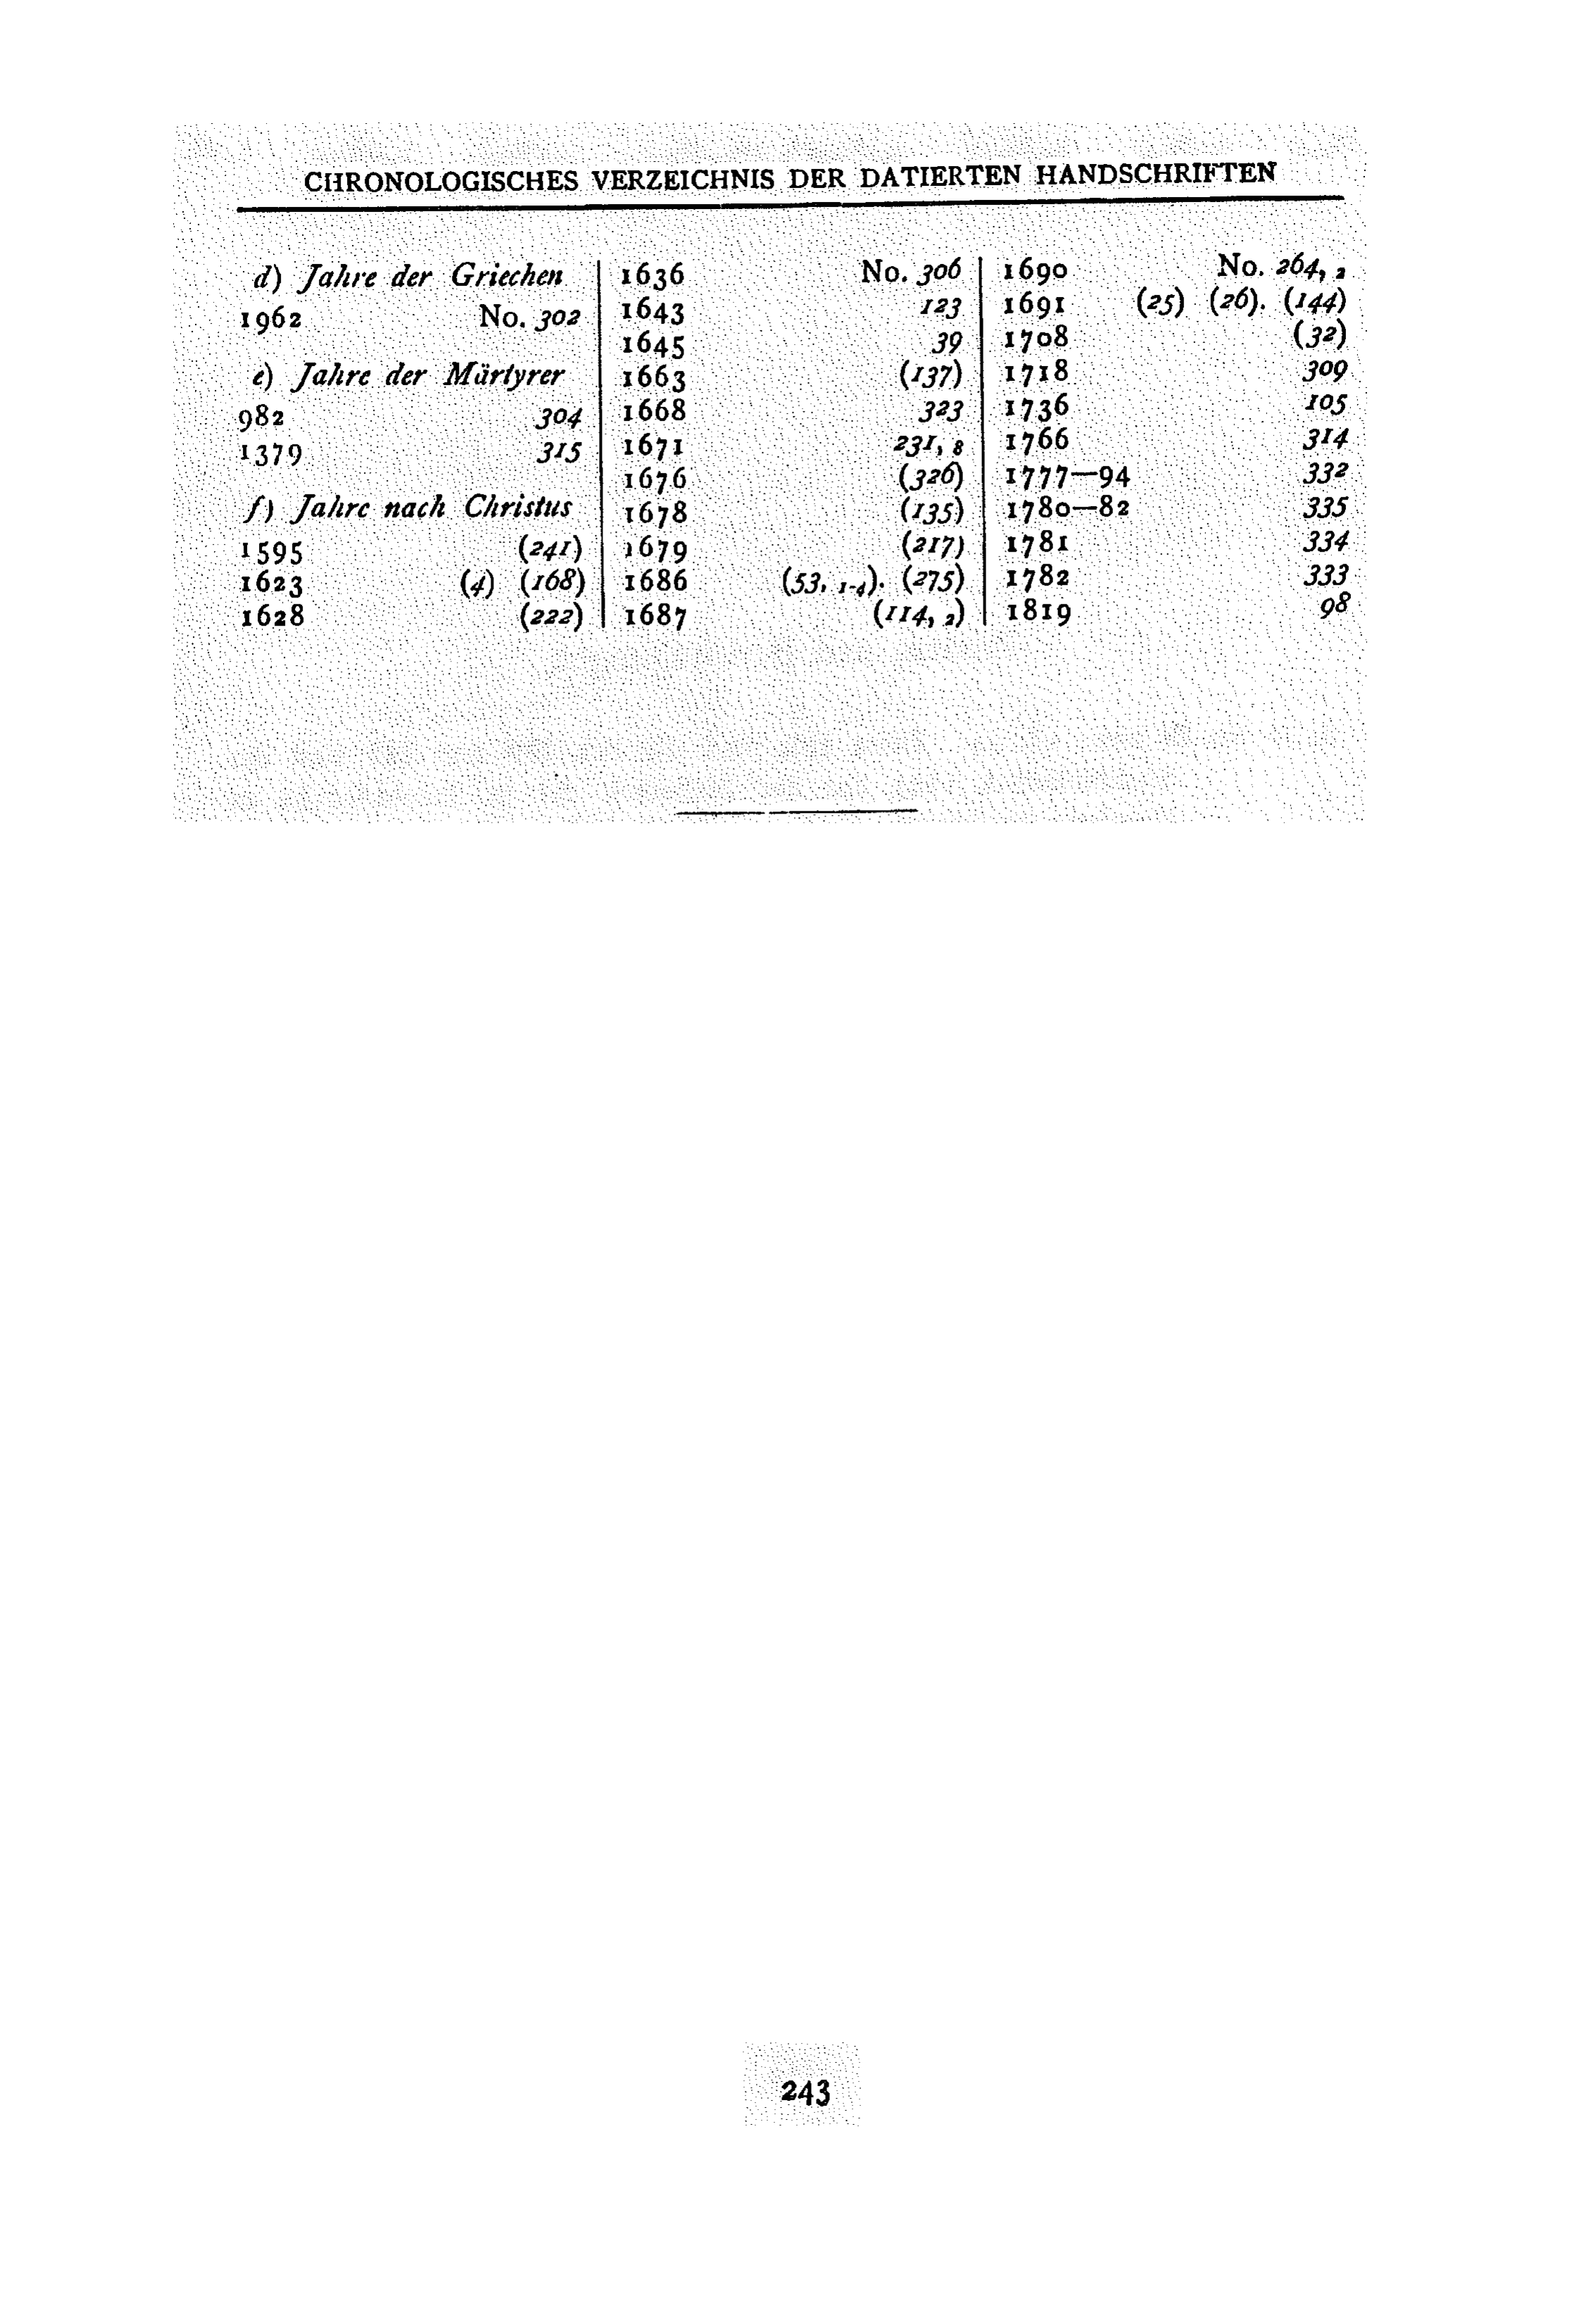 CHRONOLOGISCHES VERZEICHNIS DER DATIERTEN HANDSCHRIFTEN
d) Jahre der Griechen
1962 No. 302
e) Jahre der Märtyrer
982 304
1379 315
f) Jahre nach Christus
1595 (241)
1623 (4) (168)
1628 (222)
1636 No. 306
1643 123
1645 39
1663 (137)
1668 323
1671 231, 8
1676 (326)
1678 (135)
1679 (217)
1686 (53, 1-4). (275)
1687 (114, 2)
1690 No. 264, 2
1691 (25) (26). (144)
1708 (32)
1718 309
1736 105
1766 314
1777—94 332
1780—82 335
1781 334
1782 333
1819 98
243